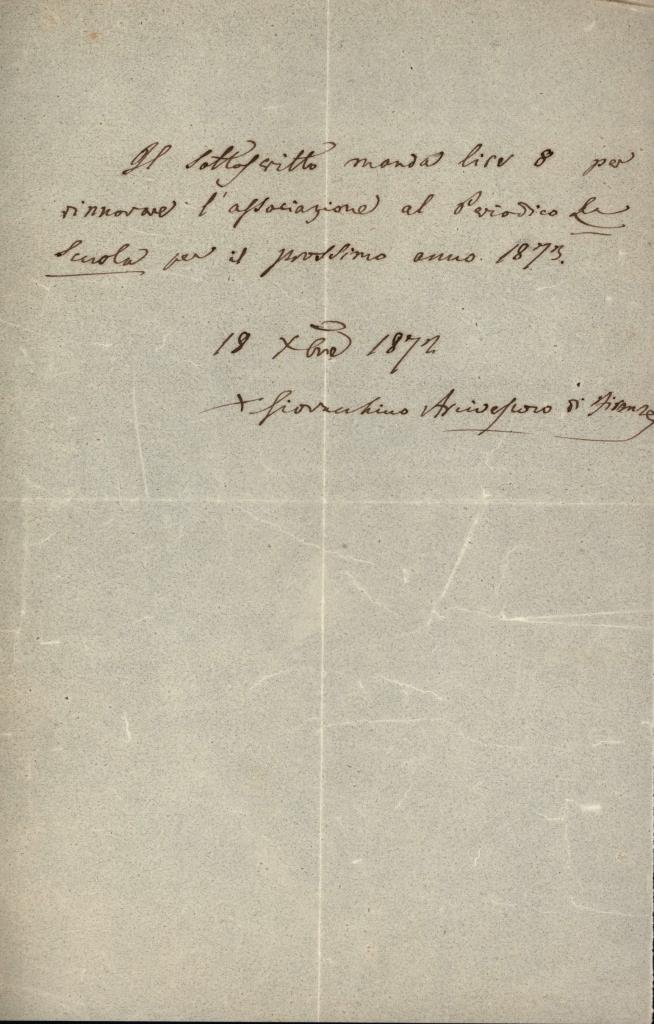 Il sottoscritto manda lire 8 per
rinnovare l'associazione al Periodico La
Scuola per il prossimo anno 1873.
18 Xbre 1872
+ Giovacchino Arcivescovo di Firenze